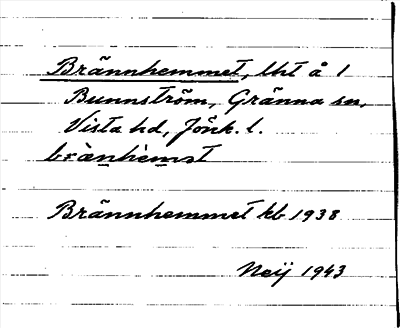 Brännhemmet, lht å 1
Bunnström, Gränna sn,
Vista hd, Jönk. l.
bränhèmət
Brännhemmet kb 1938
Neij 1943